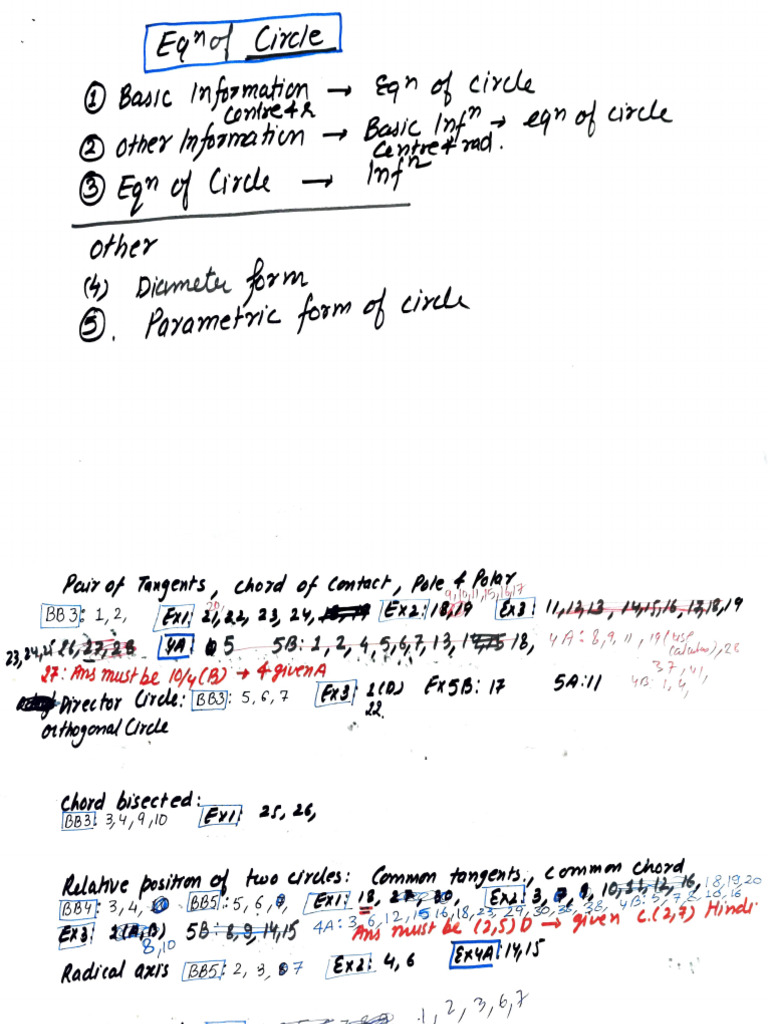 Eqⁿ of Circle
① Basic Information → Eqⁿ of circle
centre & r
② Other Information → Basic Infⁿ → eqn of circle
centre & rad.
③ Eqⁿ of Circle → Infⁿ
Other
(4) Diameter form
⑤. Parametric form of circle
Pair of Tangents, chord of contact, Pole & Polar
9,10,11,15,16,17
BB3: 1, 2, Ex1: 21, 22, 23, 24, Ex2: 18, 19 Ex3: 11, 12, 13, 14, 15, 16, 17, 18, 19
20,
23, 24, 25 26, 27, 28 4A: 5 5B: 1, 2, 4, 5, 6, 7, 13, 14, 15 18, 4A: 8, 9, 11, 19 (use calculus), 28
37, 41,
4B: 1, 4,
27: Ans must be 10/4 (B) → 4 given A
Director Circle: BB3: 5, 6, 7 Ex3: 1(D) Ex5B: 17 5A: 11
22.
Orthogonal Circle
Chord bisected:
BB3: 3, 4, 9, 10 Ex1: 25, 26,
Relative position of two circles: Common tangents, common chord
BB4: 3, 4, BB5: 5, 6, Ex1: 18, Ex2: 3, 10, 11, 12, 16, 18, 19, 20
4A: 3, 6, 12, 15 16, 18, 23, 29, 30, 35, 38, 4B: 5, 7, 8, 10, 16
Ex3: 2(A,B) 5B: 8, 9, 14, 15 Ans must be (2,5) D → given C.(2,7) Hindi
8, 10
Radical axis BB5: 2, 3, 7 Ex2: 4, 6 Ex4A: 14, 15
1, 2, 3, 6, 7